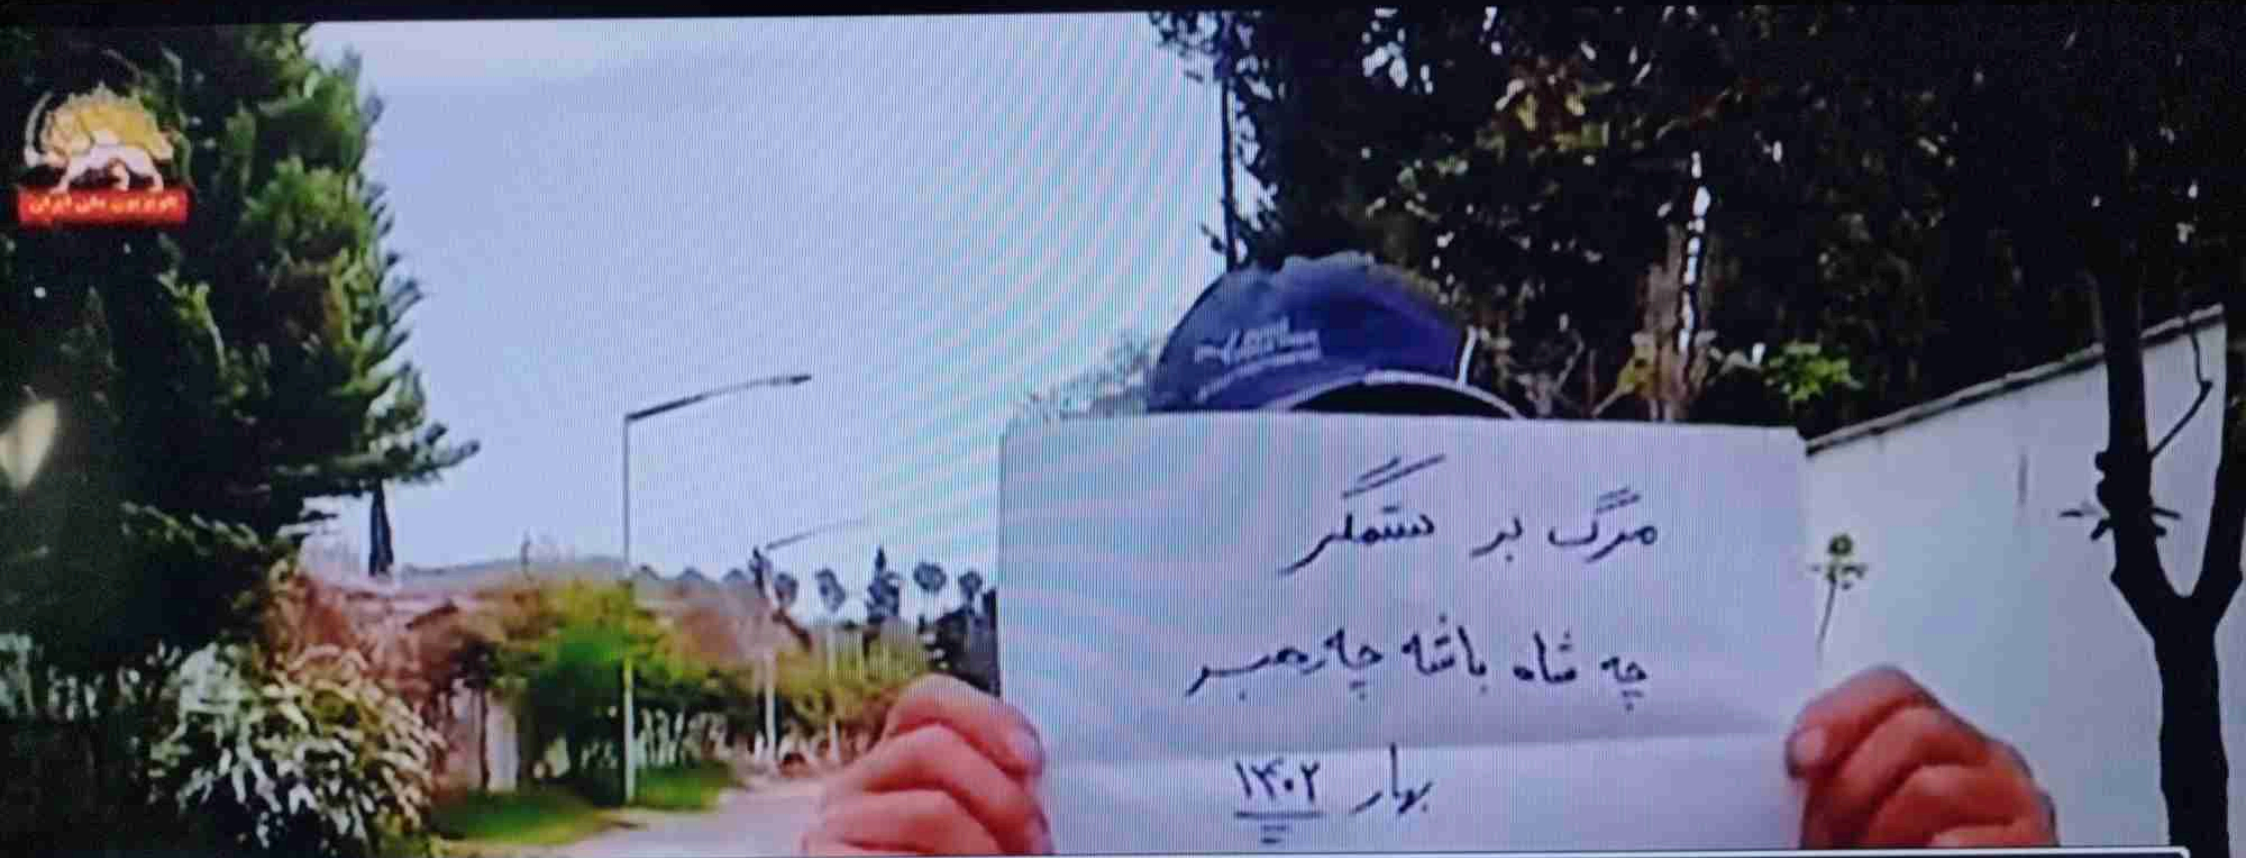 مرگ بر ستمگر
چه شاه باشه چه رهبر
بهار ۱۴۰۲